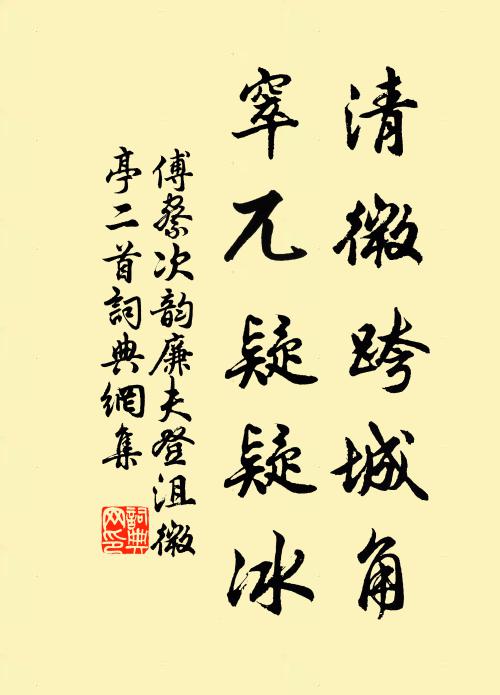 清微跨城角
窣兀疑疑冰
傅察次韵廉夫登沮微
亭二首詞典網集
詞典網印